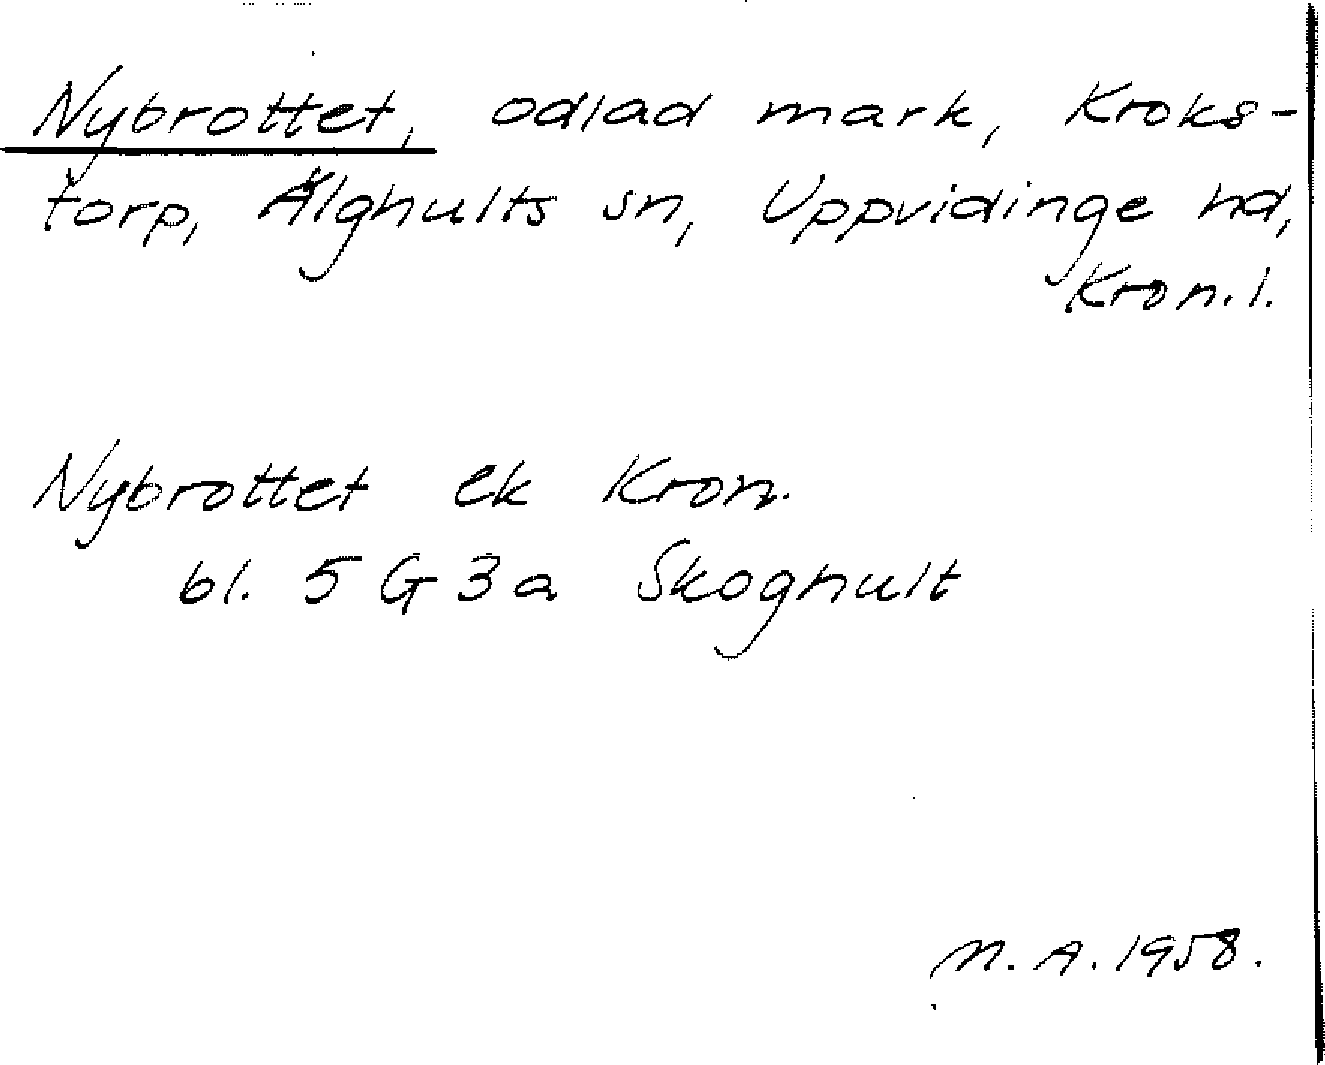 Nybrottet, odlad mark, Kroks-
torp, Älghults sn, Uppvidinge hd,
Kron. l.
Nybrottet ek Kron.
bl. 5 G 3 a Skoghult
M. A. 1958.